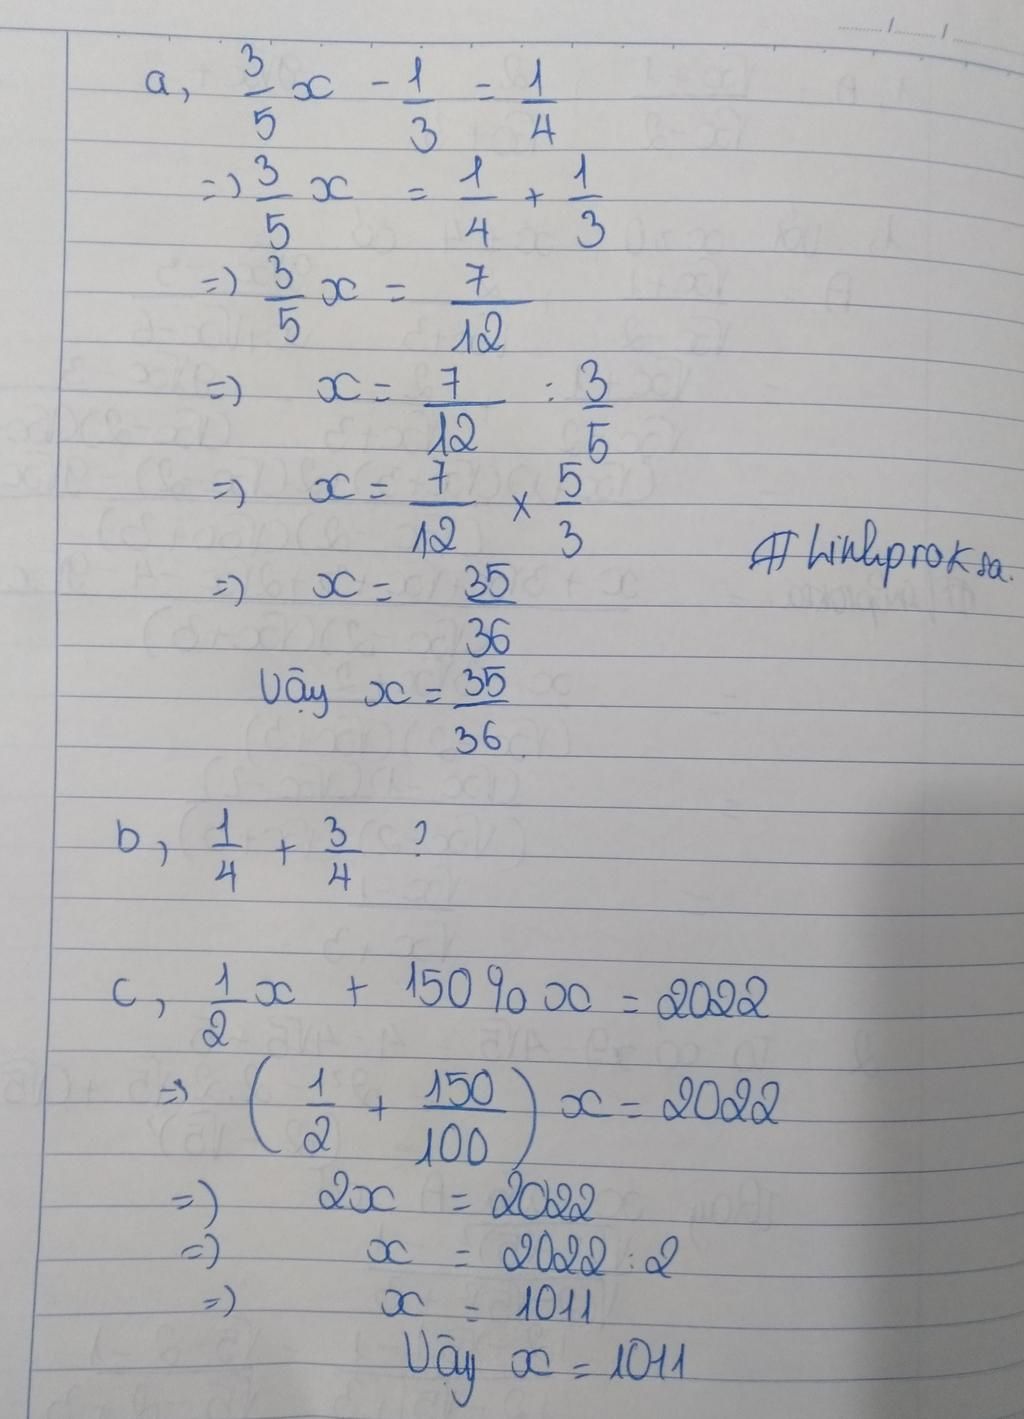 a, 3/5 x - 1/3 = 1/4
=> 3/5 x = 1/4 + 1/3
=> 3/5 x = 7/12
=> x = 7/12 : 3/5
=> x = 7/12 × 5/3
=> x = 35/36
#Linhproksa.
Vậy x = 35/36.
b, 1/4 + 3/4 ?
c, 1/2 x + 150% x = 2022
=> (1/2 + 150/100) x = 2022
=> 2x = 2022
=> x = 2022 : 2
=> x = 1011
Vậy x = 1011